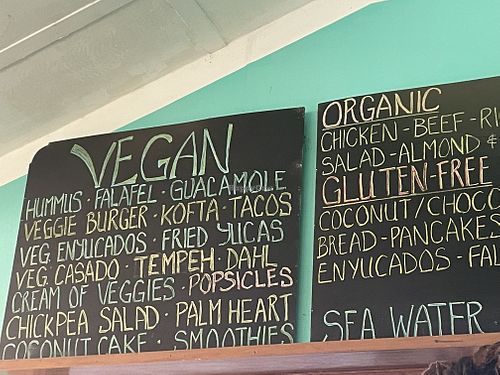 VEGAN
HUMMUS · FALAFEL · GUACAMOLE
VEGGIE BURGER · KOFTA · TACOS
VEG. ENYUCADOS · FRIED YUCAS
VEG. CASADO · TEMPEH · DAHL
CREAM OF VEGGIES · POPSICLES
CHICKPEA SALAD · PALM HEART
COCONUT CAKE · SMOOTHIES
ORGANIC
CHICKEN - BEEF - RI
SALAD - ALMOND &
GLUTEN-FREE
COCONUT/CHOCC
BREAD - PANCAKES
ENYUCADOS - FAL
SEA WATER